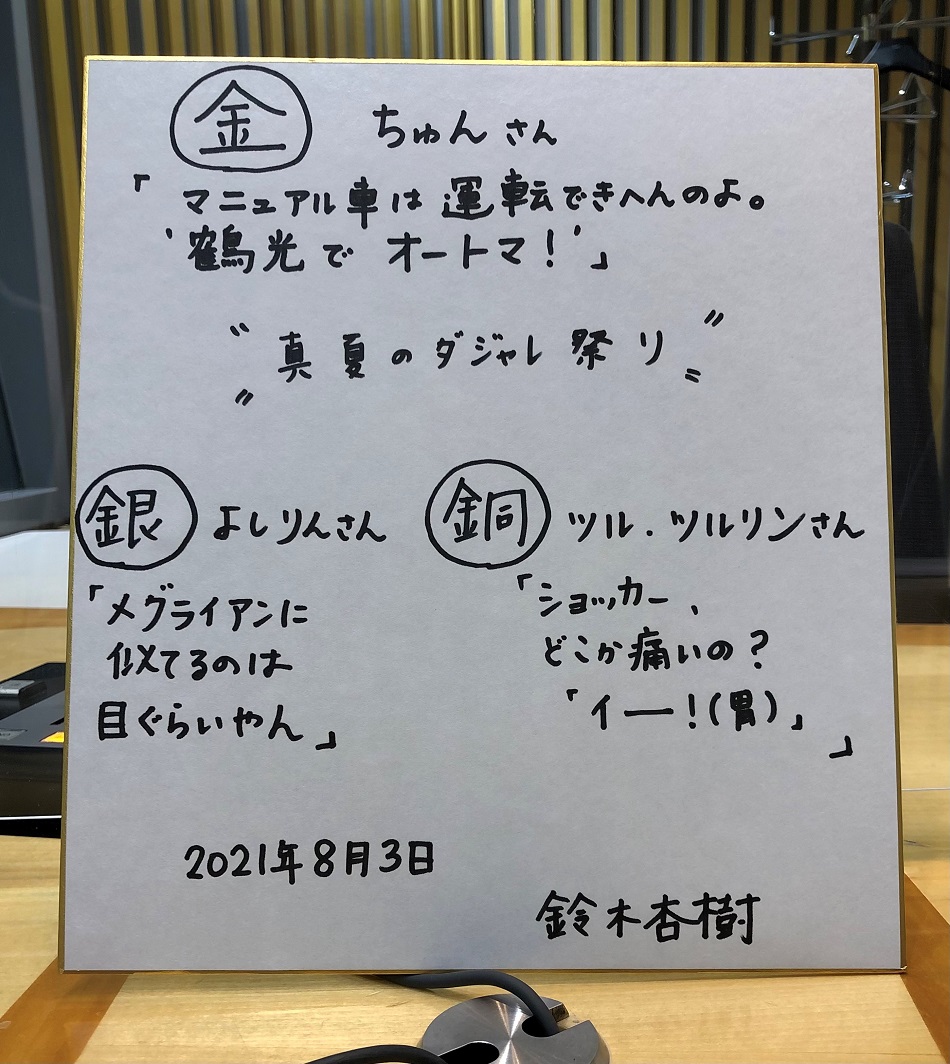 金 ちゅんさん
「マニュアル車は運転できへんのよ。
'鶴光で オートマ!'」
"真夏のダジャレ祭り"
銀 よしりんさん
「メグライアンに
似てるのは
目ぐらいやん」
銅 ツル.ツルリンさん
「ショッカー、
どこか痛いの?
「イー!(胃)」
」
2021年8月3日
鈴木杏樹